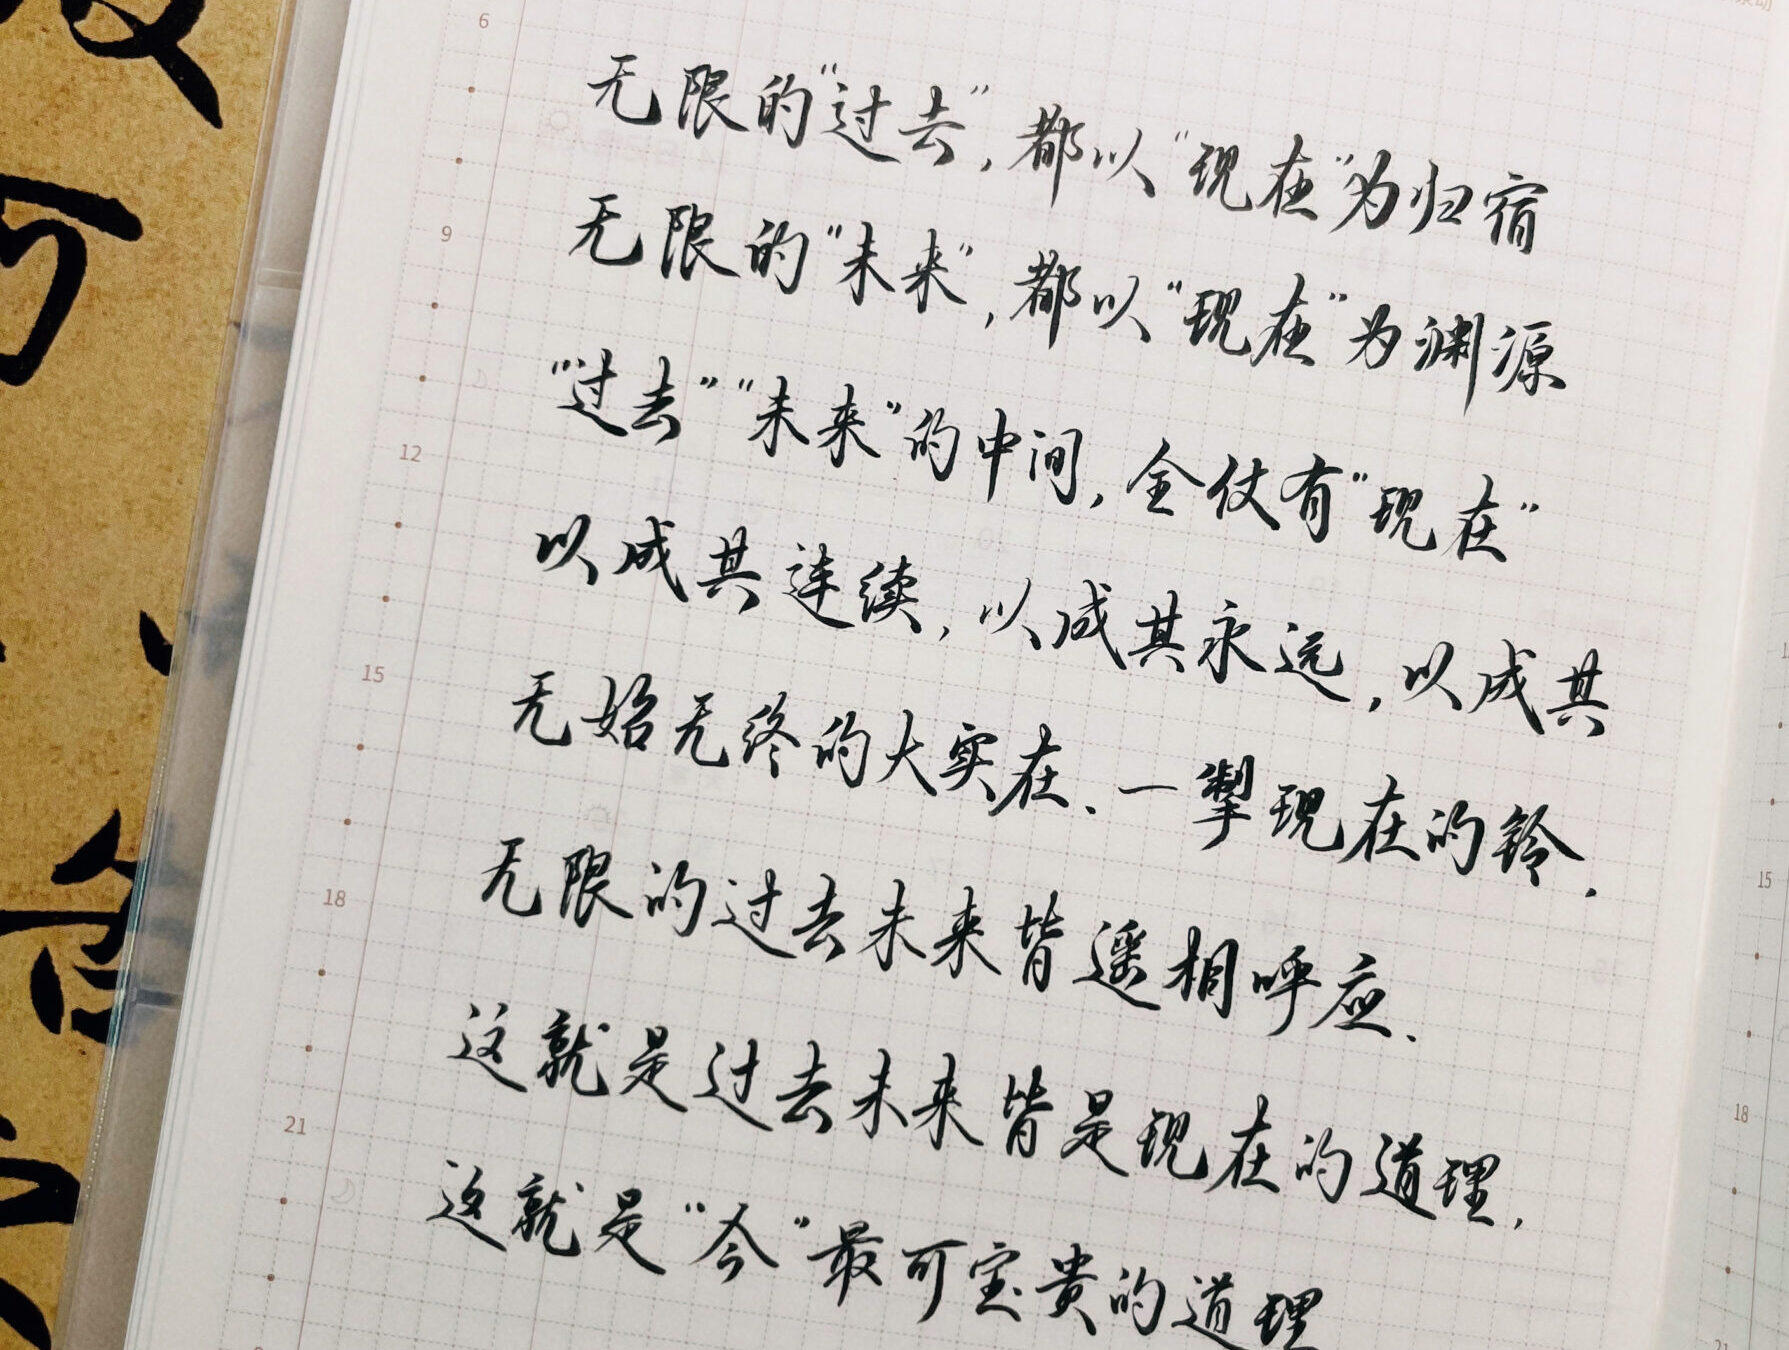 6
无限的“过去”,都以“现在”为归宿
9
无限的“未来”,都以“现在”为渊源
“过去”“未来”的中间,全仗有“现在”
12
以成其连续,以成其永远,以成其
15
无始无终的大实在、一掣现在的铃.
18
无限的过去未来皆遥相呼应.
这就是过去未来皆是现在的道理,
21
这就是“今”最可宝贵的道理
15
18
21
可